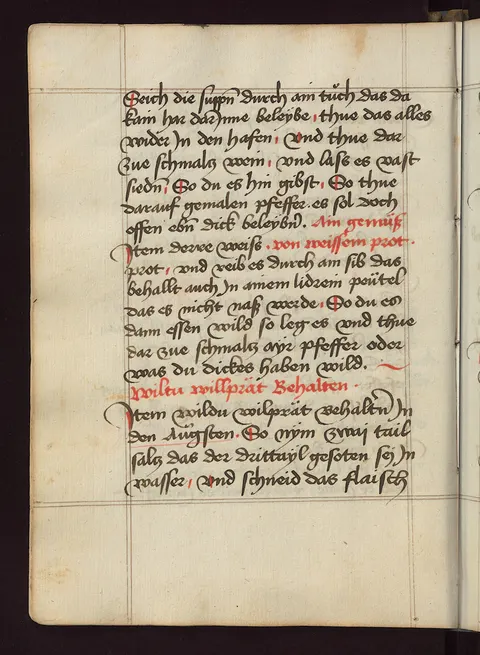 Seich die suppñ durch ain tuͦch das da
kain har dar Jnne beleybe, thue das alles
wider Jn den hafen, vnd thue dar
zue schmaltz wein, vnd lass es vast
siedñ, So du es hin gibst, So thue
darauf gemalen pfeffer. es sol doch
offen ebñ dick beleybñ. Ain gemüß
Jtem derre weiss. von weissem prot.
prot, vnd reib es durch ain sib das
behallt auch Jn ainem lidrem peütel
das es nicht naß werde, So du es
dann essen wild so leg es vnd thue
dar zue schmaltz ayr pfeffer oder
was du dickes haben wild.
Wiltu willprät Behalten.
Jtem wildu wilprät behaltñ Jn
den Augsten. So nÿm zwai tail
saltz das der drittayl gesoten sej Jn
wasser, vnd schneid das flaisch